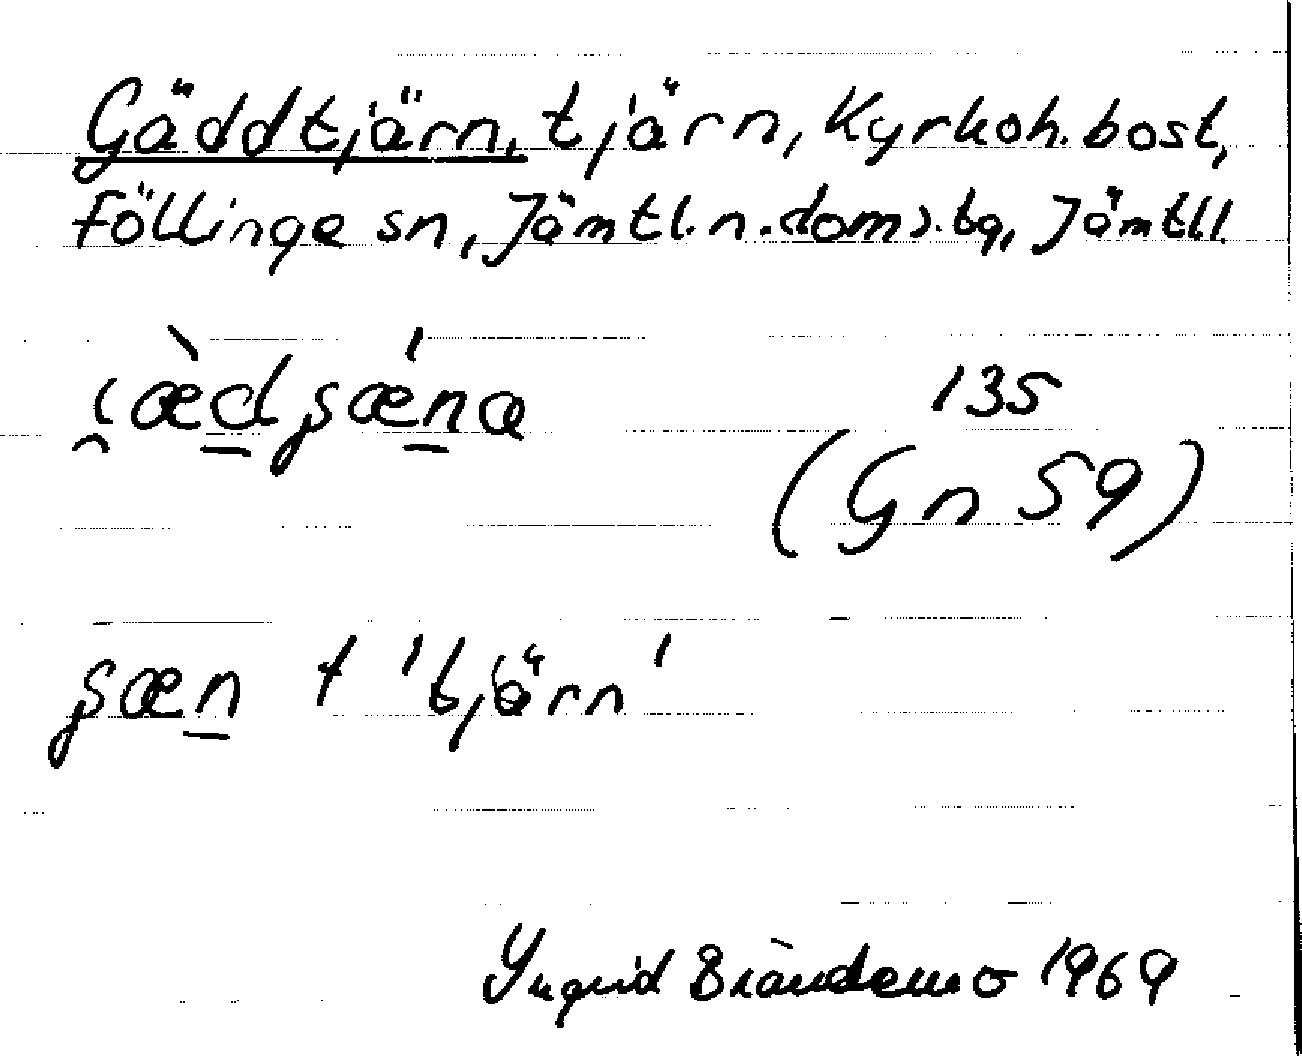 Gäddtjärn, tjärn, Kyrkoh.bost,
Föllinge sn, Jämtl.n.doms.bg, Jämtl l.
135
(Gn 59)
f 'tjärn'
Ingrid Brändemo 1969